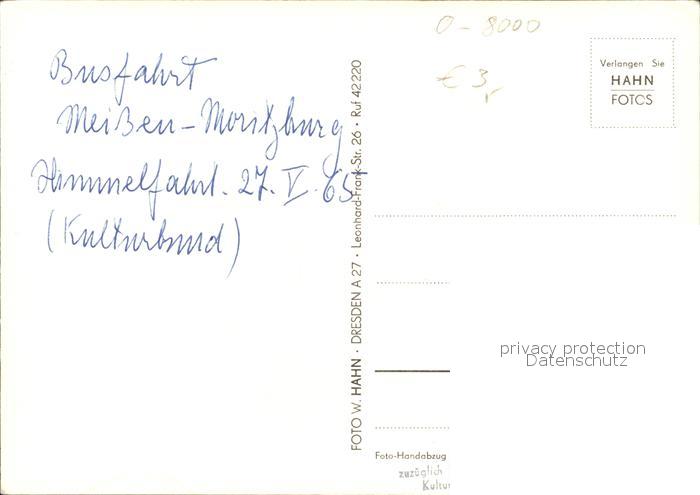 O - 8000
€ 3,
Verlangen Sie
HAHN
FOTOS
Busfahrt
Meißen - Moritzburg
Himmelfahrt. 27. V. 65
(Kulturbund)
FOTO W. HAHN · DRESDEN A 27 · Leonhard-Frank-Str. 26 · Ruf 42220
privacy protection
Datenschutz
Foto-Handabzug
zuzüglich
Kultur